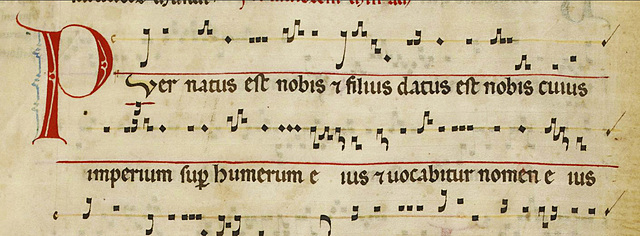 Puer natus est nobis ⁊ filius datus est nobis cuius
imperium sup humerum e ius ⁊ uocabitur nomen e ius